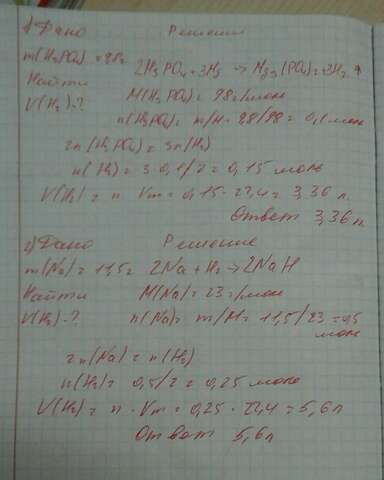 1) Дано Решение
m(H3PO4) = 9,8г
2H3PO4 + 3Mg → Mg3(PO4)2 + 3H2 ↑
Найти M(H3PO4) = 98 г/моль
V(H2)-? n(H3PO4) = m/M = 9,8/98 = 0,1 моль
2n(H3PO4) = 3n(H2)
n(H2) = 3·0,1/2 = 0,15 моль
V(H2) = n · Vm = 0,15 · 22,4 = 3,36 л.
Ответ 3,36 л.
2) Дано Решение
m(Na) = 11,5г 2Na + H2 → 2NaH
Найти M(Na) = 23 г/моль
V(H2)-? n(Na) = m/M = 11,5/23 = 0,5
моль
2n(Na) = n(H2)
n(H2) = 0,5/2 = 0,25 моль
V(H2) = n · Vm = 0,25 · 22,4 = 5,6 л
Ответ 5,6 л